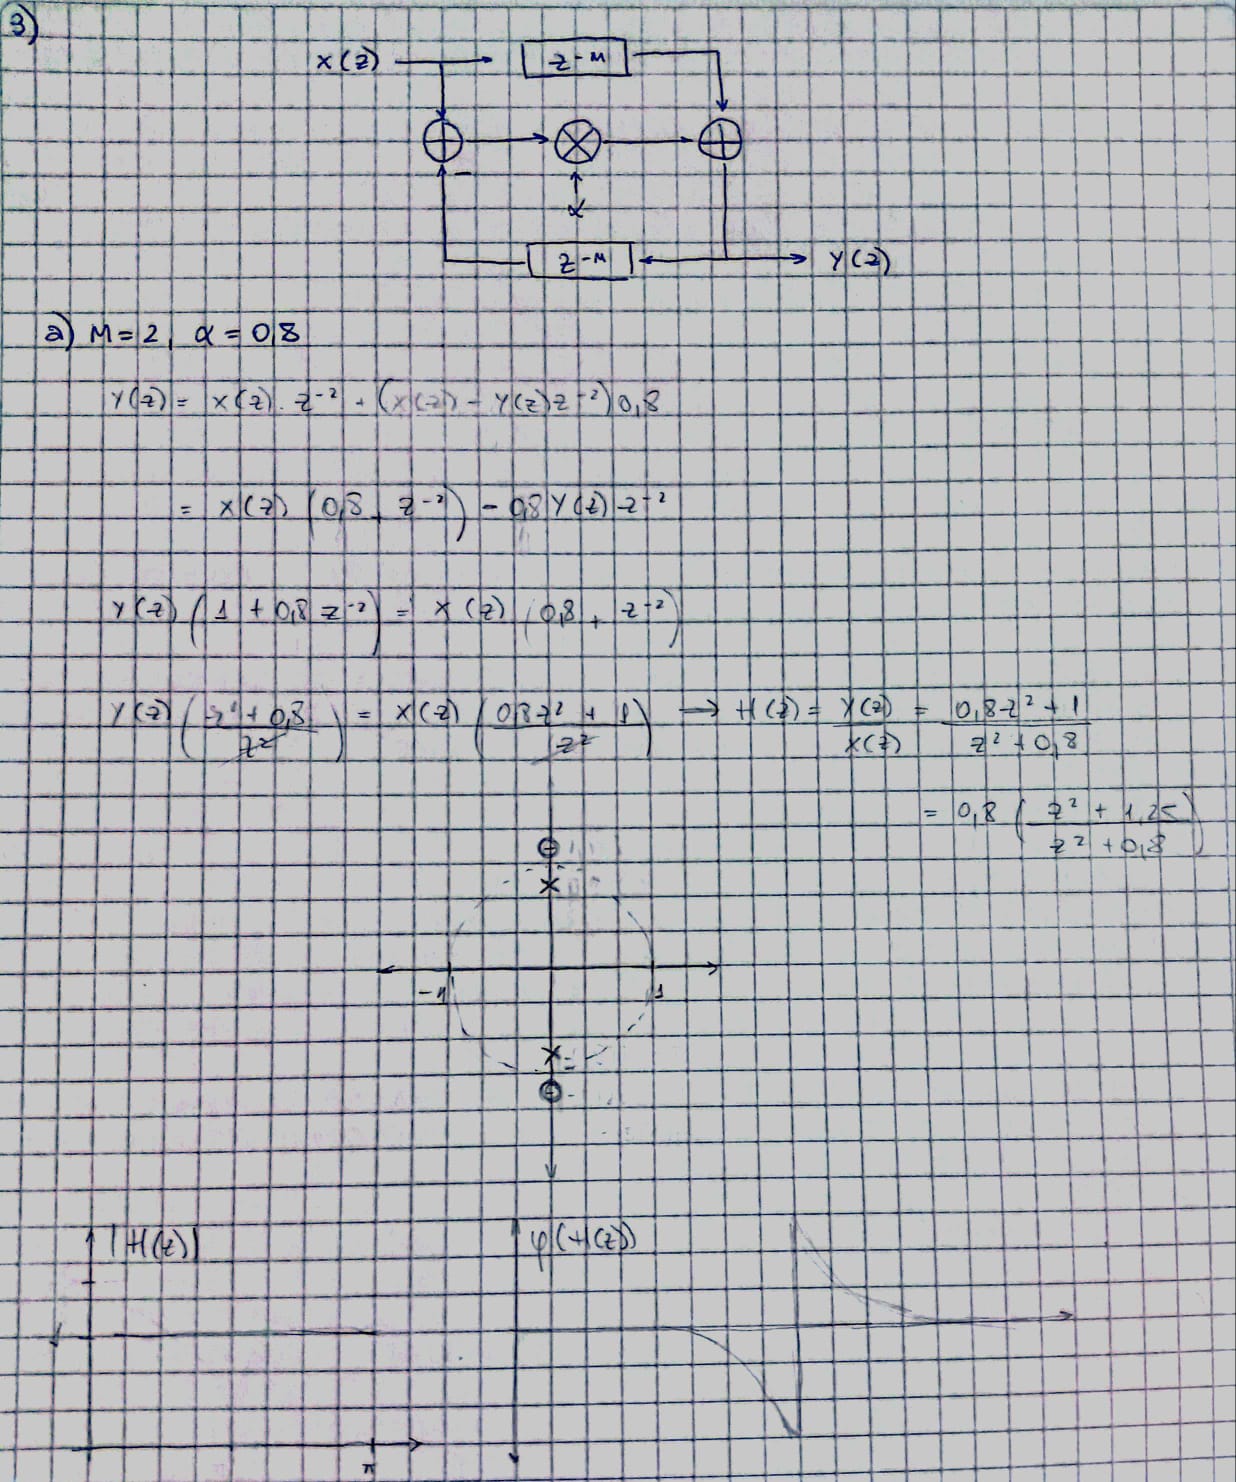 3)
X(z) z⁻ᴹ
-
α
z⁻ᴹ Y(z)
a) M = 2, α = 0,8
Y(z) = X(z) . z⁻² + (X(z) - Y(z) z⁻²) 0,8
= X(z) (0,8 + z⁻²) - 0,8 Y(z) z⁻²
Y(z) (1 + 0,8 z⁻²) = X(z) (0,8 + z⁻²)
Y(z) ((z² + 0,8)/z²) = X(z) ((0,8z² + 1)/z²) → H(z) = Y(z)/X(z) = (0,8z² + 1)/(z² + 0,8)
= 0,8 ((z² + 1,25)/(z² + 0,8))
-1 1
|H(z)| φ(H(z))
π